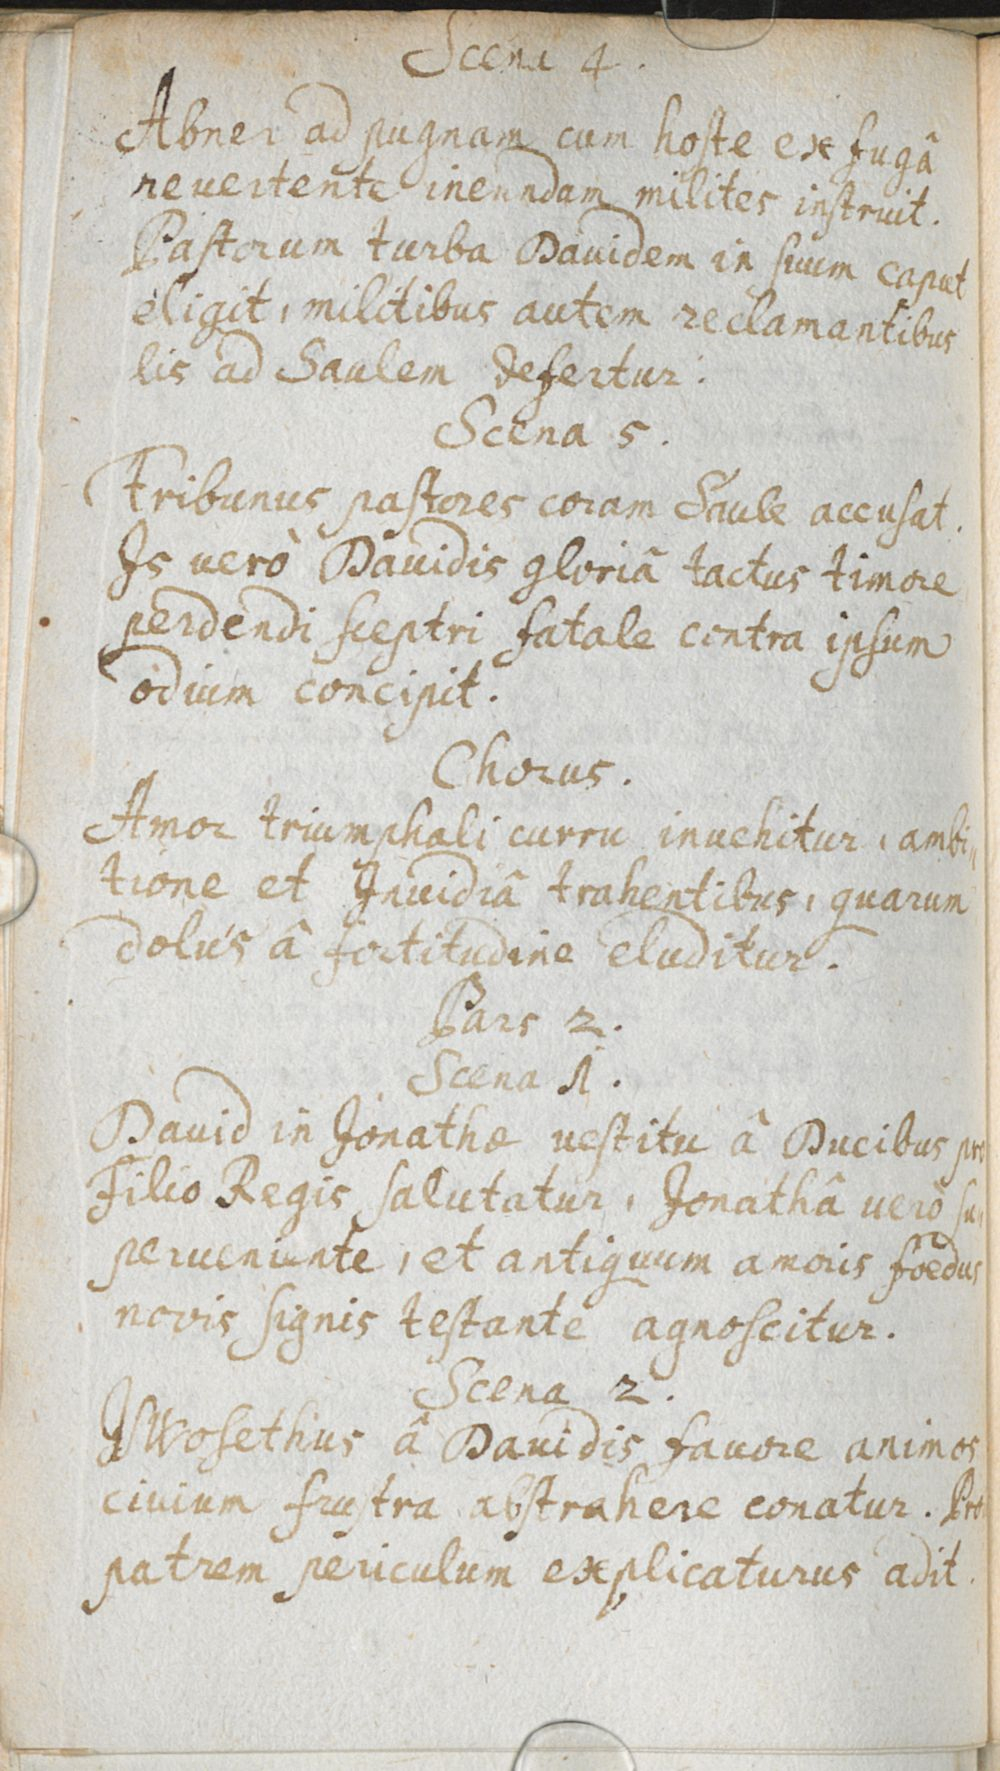 Scena 4.
Abner ad pugnam cum hoste ex fugâ
revertente ineundam milites instruit.
Pastorum turba Dauidem in suum caput
eligit, militibus autem reclamantibus
lis ad Saulem defertur.
Scena 5.
Tribunus pastores coram Saule accusat.
Is verò Dauidis gloriâ tactus timore
perdendi sceptri fatale contra ipsum
odium concipit.
Chorus.
Amor triumphali curru inuehitur, ambi„
tione et Inuidiâ trahentibus, quarum
dolus â fortitudine eluditur.
Pars 2.
Scena 1.
Dauid in Jonathæ uestitu â Ducibus pro
Filio Regis salutatur, Jonathâ uerò su„
perueniente, et antiquum amoris foedus
novis signis testante agnoscitur.
Scena 2.
Isbosethus â Dauidis fauore animos
ciuium frustra abstrahere conatur.
patrem periculum explicaturus adit.